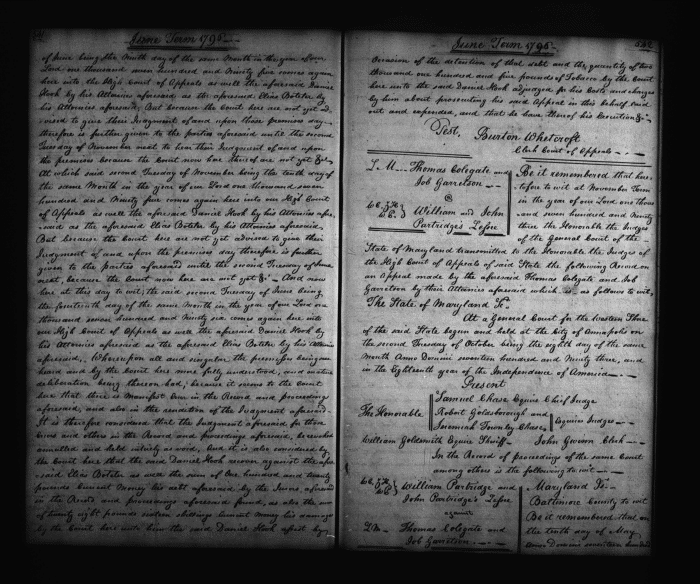 June Term 1796
of June being the Ninth day of the same Month in the year of our
Lord one thousand seven hundred and Ninety five comes again
here into the High Court of Appeals as well the aforesaid Daniel
Hook by his Attornies aforesaid as the aforesaid Elias Boteler by
his Attornies aforesaid, But because the Court here are not yet ad-
vised to give their Judgment of and upon the premises day
therefore is further given to the parties aforesaid until the second
Tuesday of November next to hear their Judgment of and upon
the premises because the Court now here thereof are not yet &c. And now
At which said second Tuesday of November being the tenth day of
the same Month in the year of our Lord one thousand seven
hundred and Ninety five comes again here into our High Court
of Appeals as well the aforesaid Daniel Hook by his Attornies afore
said as the aforesaid Elias Boteler by his Attornies aforesaid.
But because the Court here are not yet advised to give their
Judgment of and upon the premises day therefore is further
given to the parties aforesaid until the second Tuesday of June
next because the Court now here thereof are not yet &c. And now
here at this day to wit, the said second Tuesday of June being
the fourteenth day of the same Month in the year of our Lord one
thousand seven hundred and Ninety six comes again here into
our High Court of Appeals as well the aforesaid Daniel Hook by
his Attornies aforesaid as the aforesaid Elias Boteler by his Attornies
aforesaid, Whereupon all and singular the premises being seen
heard and by the Court here more fully understood, and mature
deliberation being thereon had, because it seems to the Court
here that there is Manifest Error in the Record and proceedings
aforesaid, and also in the rendition of the Judgment aforesaid
It is therefore considered that the Judgment aforesaid for those
Errors and others in the Record and proceedings aforesaid, be revoked
annulled and held entirely as void, And it is also considered by
the Court here that the said Daniel Hook recover against the afore
said Elias Boteler as well the sum of One hundred and twenty
pounds Current Money his debt aforesaid by the Jurors aforesaid
in the Record and proceedings aforesaid found, as also the sum
of twenty eight pounds sixteen shillings Current Money his damages
by the Court here unto him the said Daniel Hook assess'd by
June Term 1796
552
Occasion of the detention of that debt and the quantity of two
thousand one hundred and five pounds of Tobacco by the Court
here unto the said Daniel Hook adjudged for his Costs and charges
by him about prosecuting his said Appeal in this behalf laid
out and expended, and that he have thereof his Execution &c.
Test, Burton Whetcroft
Clerk Court of Appeals
L. M Thomas Colegate and
Job Garretson
@
William and John
Partridge's Lessee
Be it remembered that here-
tofore to wit at November Term
in the year of our Lord one thous
and seven hundred and Ninety
three the Honorable the Judges
of the General Court of the
State of Maryland transmitted to the Honorable the Judges of
the High Court of Appeals of said State the following Record on
an appeal made by the aforesaid Thomas Colegate and Job
Garretson by their Attornies aforesaid which is as follows to wit,
The State of Maryland Sc.
At a General Court for the Western Shore
of the said State begun and held at the City of Annapolis on
the second Tuesday of October being the eighth day of the same
Month Anno Domini seventeen hundred and Ninety three, and
in the Eighteenth year of the Independence of America
Present
The Honorable
Samuel Chase Esquire Chief Judge
Robert Goldsborough and
Jeremiah Townley Chase
Esquires Judges
William Goldsmith Esquire Sheriff John Gwinn Clerk
In the Record of Proceedings of the same Court
among others is the following to wit
William Partridge and
John Partridge's Lessee
against
L. M. Thomas Colegate and
Job Garretson
Maryland Sc.
Baltimore County to wit
Be it remembered that on
the tenth day of May
Anno Domini seventeen hundred